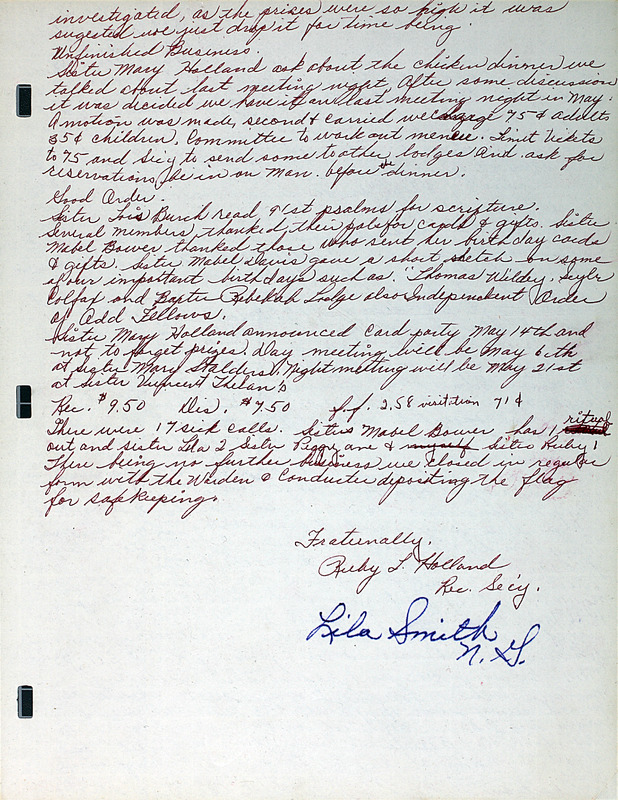 investigated, as the prises were so high it was
sugested we just drop it for time being.
Unfinished Business.
Sister Mary Holland ask about the chicken dinner we
talked about last meeting night. After some discussion
it was decided we have it our last meeting night in May.
A motion was made, second & carried we charge 75¢ adults
35¢ children. Committee to work out menue. Limit tickets
to 75 and Sec'y to send some to other lodges and ask for
reservations be in on Mon. before the dinner.
Good Order.
Sister Lois Burch read 91st psalms for scripture.
Several members, thanked their pals for cards & gifts. Sister
Mabel Bower thanked those who sent her birthday cards
& gifts. Sister Mabel Davis gave a short sketch on some
of our important birthdays such as. Thomas Wildey,
Colfax and Rebekah Lodge also Independent Order
of Odd Fellows.
Sister Mary Holland announced card party May 14th and
not to forget prizes. Day meeting will be May 6th
at Sister Mary Stalders. Night meeting will be May 21st
at Sister Vincent Thelan's
Rec. $9.50 Dis. $7.50 f.f. 2.58 visitation 71¢
There were 17 sick calls. Sister Mabel Bower has 1 ritual
out and sister Lila 2 Sister Peggy ane & myself Sister Ruby 1
There being no further business we closed in regular
form with the Warden & Conductor depositing the flag
for safekeeping.
Fraternally,
Ruby L. Holland
Rec. Sec'y.
Lila Smith
N. G.